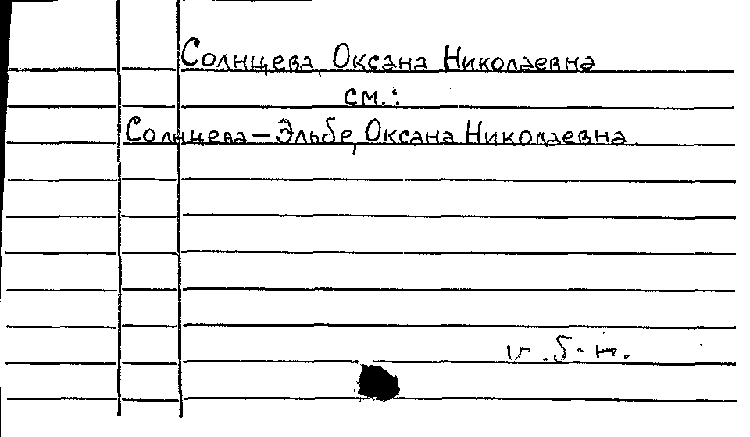 Солнцева, Оксана Николаевна
см.:
Солнцева-Эльбе, Оксана Николаевна